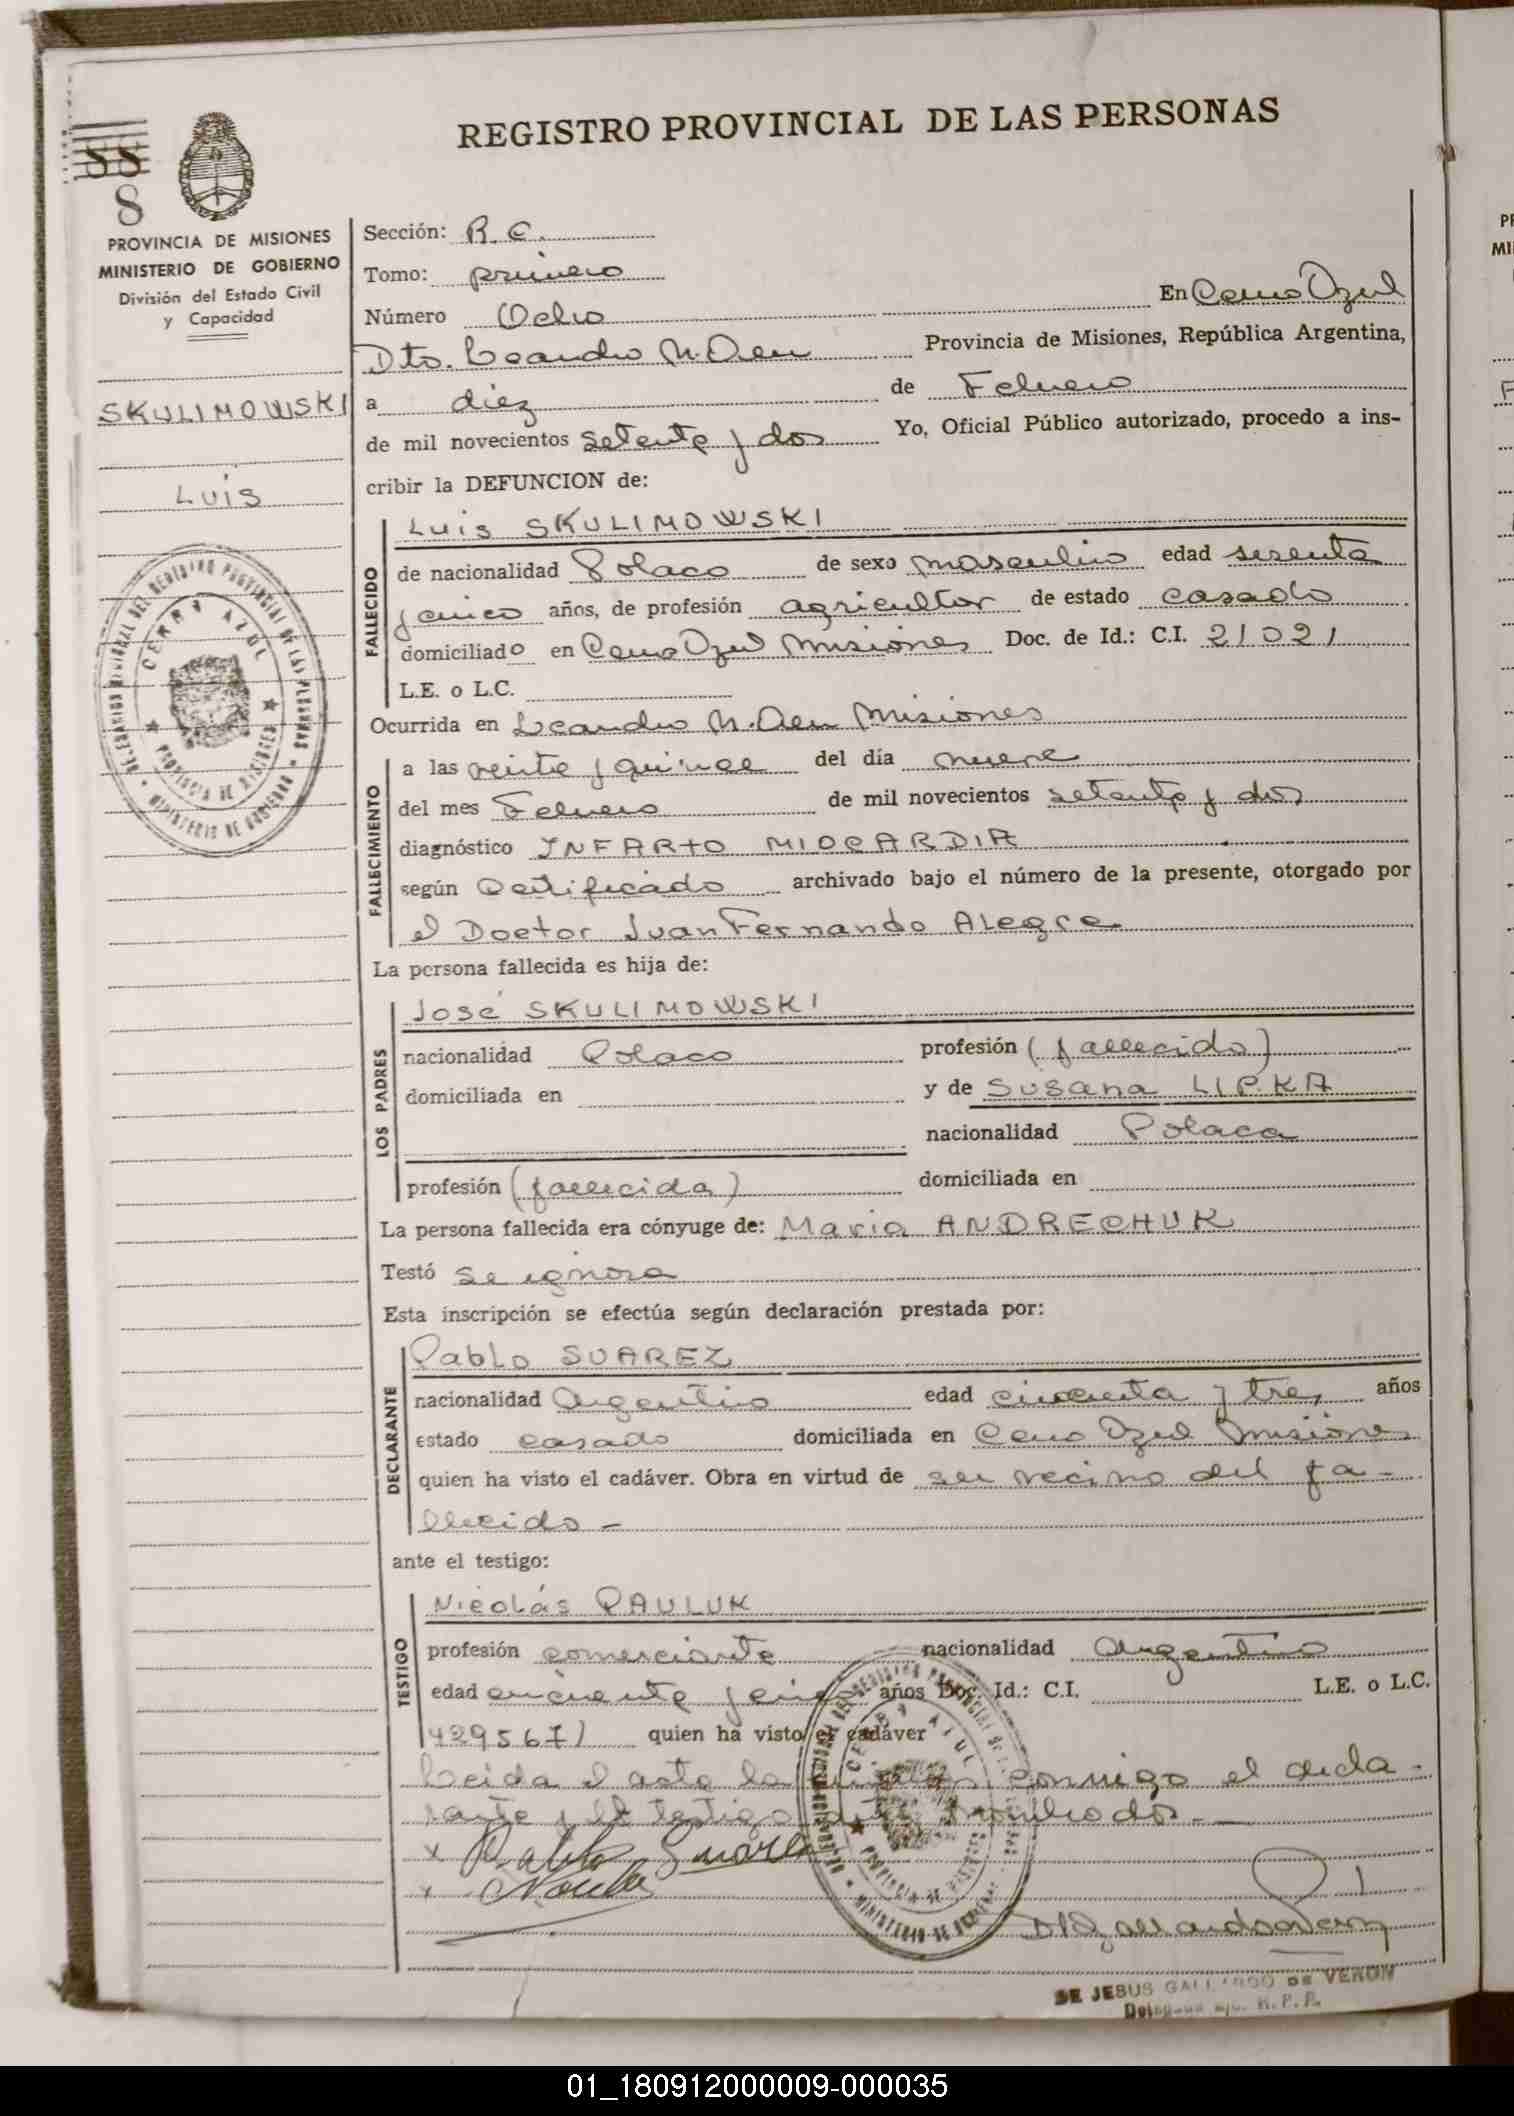 REGISTRO PROVINCIAL DE LAS PERSONAS
88
8
PROVINCIA DE MISIONES
MINISTERIO DE GOBIERNO
División del Estado Civil
y Capacidad
SKULIMOWSKI
Luis
DELEGACION SECCIONAL DEL REGISTRO PROVINCIAL DE LAS PERSONAS
CERRO AZUL
PROVINCIA DE MISIONES
MINISTERIO DE GOBIERNO
Sección: R.C.
Tomo: primero
Número Ocho En Cerro Azul
Dto. Leandro N. Alem Provincia de Misiones, República Argentina,
a diez de Febrero
de mil novecientos setenta y dos Yo, Oficial Público autorizado, procedo a ins-
cribir la DEFUNCION de:
FALLECIDO
Luis SKULIMOWSKI
de nacionalidad Polaco de sexo masculino edad sesenta
y cinco años, de profesión agricultor de estado casado
domiciliado en Cerro Azul Misiones Doc. de Id.: C.I. 21021
L.E. o L.C.
Ocurrida en Leandro N. Alem Misiones
FALLECIMIENTO
a las veinte y quince del día nueve
del mes Febrero de mil novecientos setenta y dos
diagnóstico INFARTO MIOCARDIA
según Certificado archivado bajo el número de la presente, otorgado por
el Doctor Juan Fernando Alegre
La persona fallecida es hija de:
LOS PADRES
José SKULIMOWSKI
nacionalidad Polaco profesión (fallecido)
domiciliada en y de Susana LIPKA
nacionalidad Polaca
profesión (fallecida) domiciliada en
La persona fallecida era cónyuge de: Maria ANDRECHUK
Testó se ignora
Esta inscripción se efectúa según declaración prestada por:
DECLARANTE
Pablo SUAREZ
nacionalidad Argentino edad cincuenta y tres años
estado casado domiciliada en Cerro Azul Misiones
quien ha visto el cadáver. Obra en virtud de ser vecino del fa-
llecido -
ante el testigo:
TESTIGO
Nicolás PAULUK
profesión comerciante nacionalidad Argentino
edad cincuenta y cinco años Doc. Id.: C.I. L.E. o L.C.
4295671 quien ha visto el cadáver
Leida el acta la firman conmigo el decla-
rante y el testigo nombrados.-
x Pablo Suarez
x
DELEGACION SECCIONAL DEL REGISTRO PROVINCIAL DE LAS PERSONAS
CERRO AZUL
PROVINCIA DE MISIONES
MINISTERIO DE GOBIERNO
DE JESUS GALLARDO DE VERON
R.P.P.
01_180912000009-000035